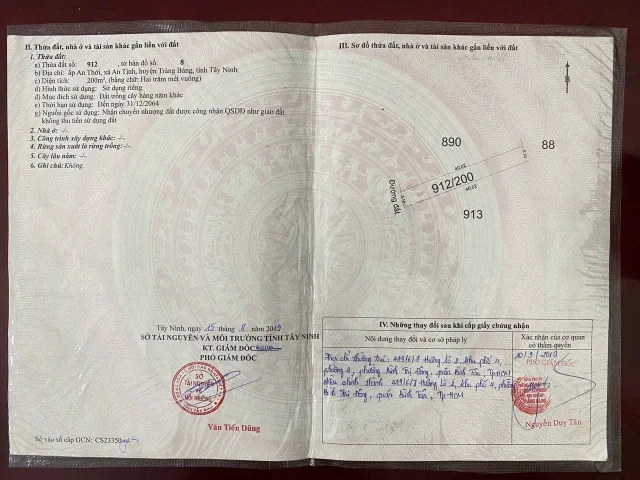 II. Thửa đất, nhà ở và tài sản khác gắn liền với đất
1. Thửa đất:
a) Thửa đất số: 912, tờ bản đồ số: 8
b) Địa chỉ: ấp An Thới, xã An Tịnh, huyện Trảng Bàng, tỉnh Tây Ninh
c) Diện tích: 200m², (bằng chữ: Hai trăm mét vuông)
d) Hình thức sử dụng: Sử dụng riêng
đ) Mục đích sử dụng: Đất trồng cây hàng năm khác
e) Thời hạn sử dụng: Đến ngày 31/12/2064
g) Nguồn gốc sử dụng: Nhận chuyển nhượng đất được công nhận QSDĐ như giao đất
không thu tiền sử dụng đất
2. Nhà ở: -/-
3. Công trình xây dựng khác: -/-
4. Rừng sản xuất là rừng trồng: -/-
5. Cây lâu năm: -/-
6. Ghi chú: Không.
Tây Ninh, ngày 15 tháng 8 năm 2019
SỞ TÀI NGUYÊN VÀ MÔI TRƯỜNG TỈNH TÂY NINH
KT. GIÁM ĐỐC
PHÓ GIÁM ĐỐC
SỞ
TÀI NGUYÊN
VÀ
MÔI TRƯỜNG
Văn Tiến Dũng
Số vào sổ cấp GCN: CS23350
III. Sơ đồ thửa đất, nhà ở và tài sản khác gắn liền với đất
B
890
88
40.02
912/200
40.02
Đường đất
913
IV. Những thay đổi sau khi cấp giấy chứng nhận
Nội dung thay đổi và cơ sở pháp lý
Xác nhận của cơ quan
có thẩm quyền
Địa chỉ thường trú: 479/6/8 Hương Lộ 2, khu phố 4,
phường Bình Trị Đông, quận Bình Tân, Tp.HCM
điều chỉnh thành 479/6/7 Hương Lộ 2, khu phố 4, phường
Bình Trị Đông, quận Bình Tân, Tp.HCM
10/9/2019
PHÓ GIÁM ĐỐC
Nguyễn Duy Tân